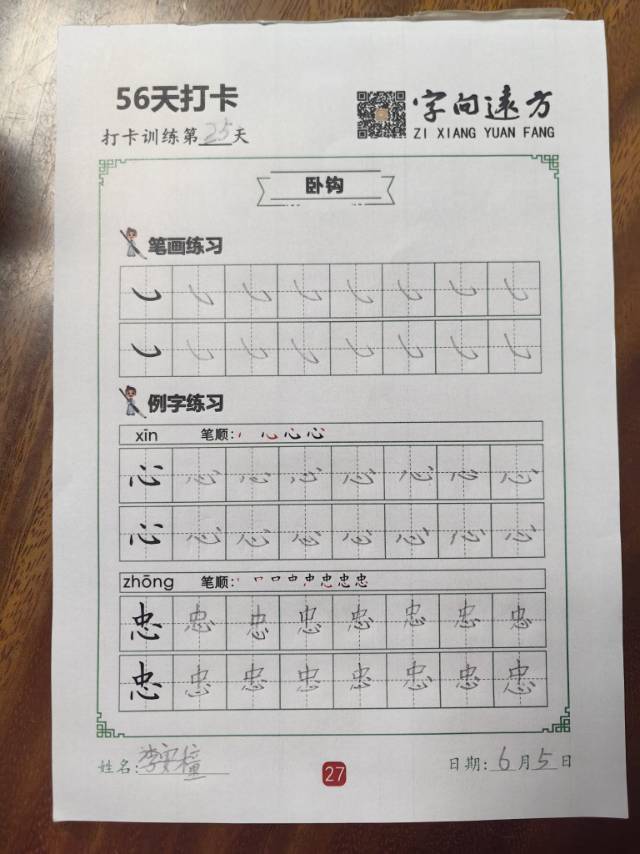 56天打卡
字向远方
打卡训练第25天
ZI XIANG YUAN FANG
卧钩
笔画练习
例字练习
xīn 笔顺:
心 心 心 心 心 心 心 心
心 心 心 心 心 心 心 心
zhōng 笔顺:
忠 忠 忠 忠 忠 忠 忠 忠
忠 忠 忠 忠 忠 忠 忠 忠
姓名:李 27 日期:6月5日